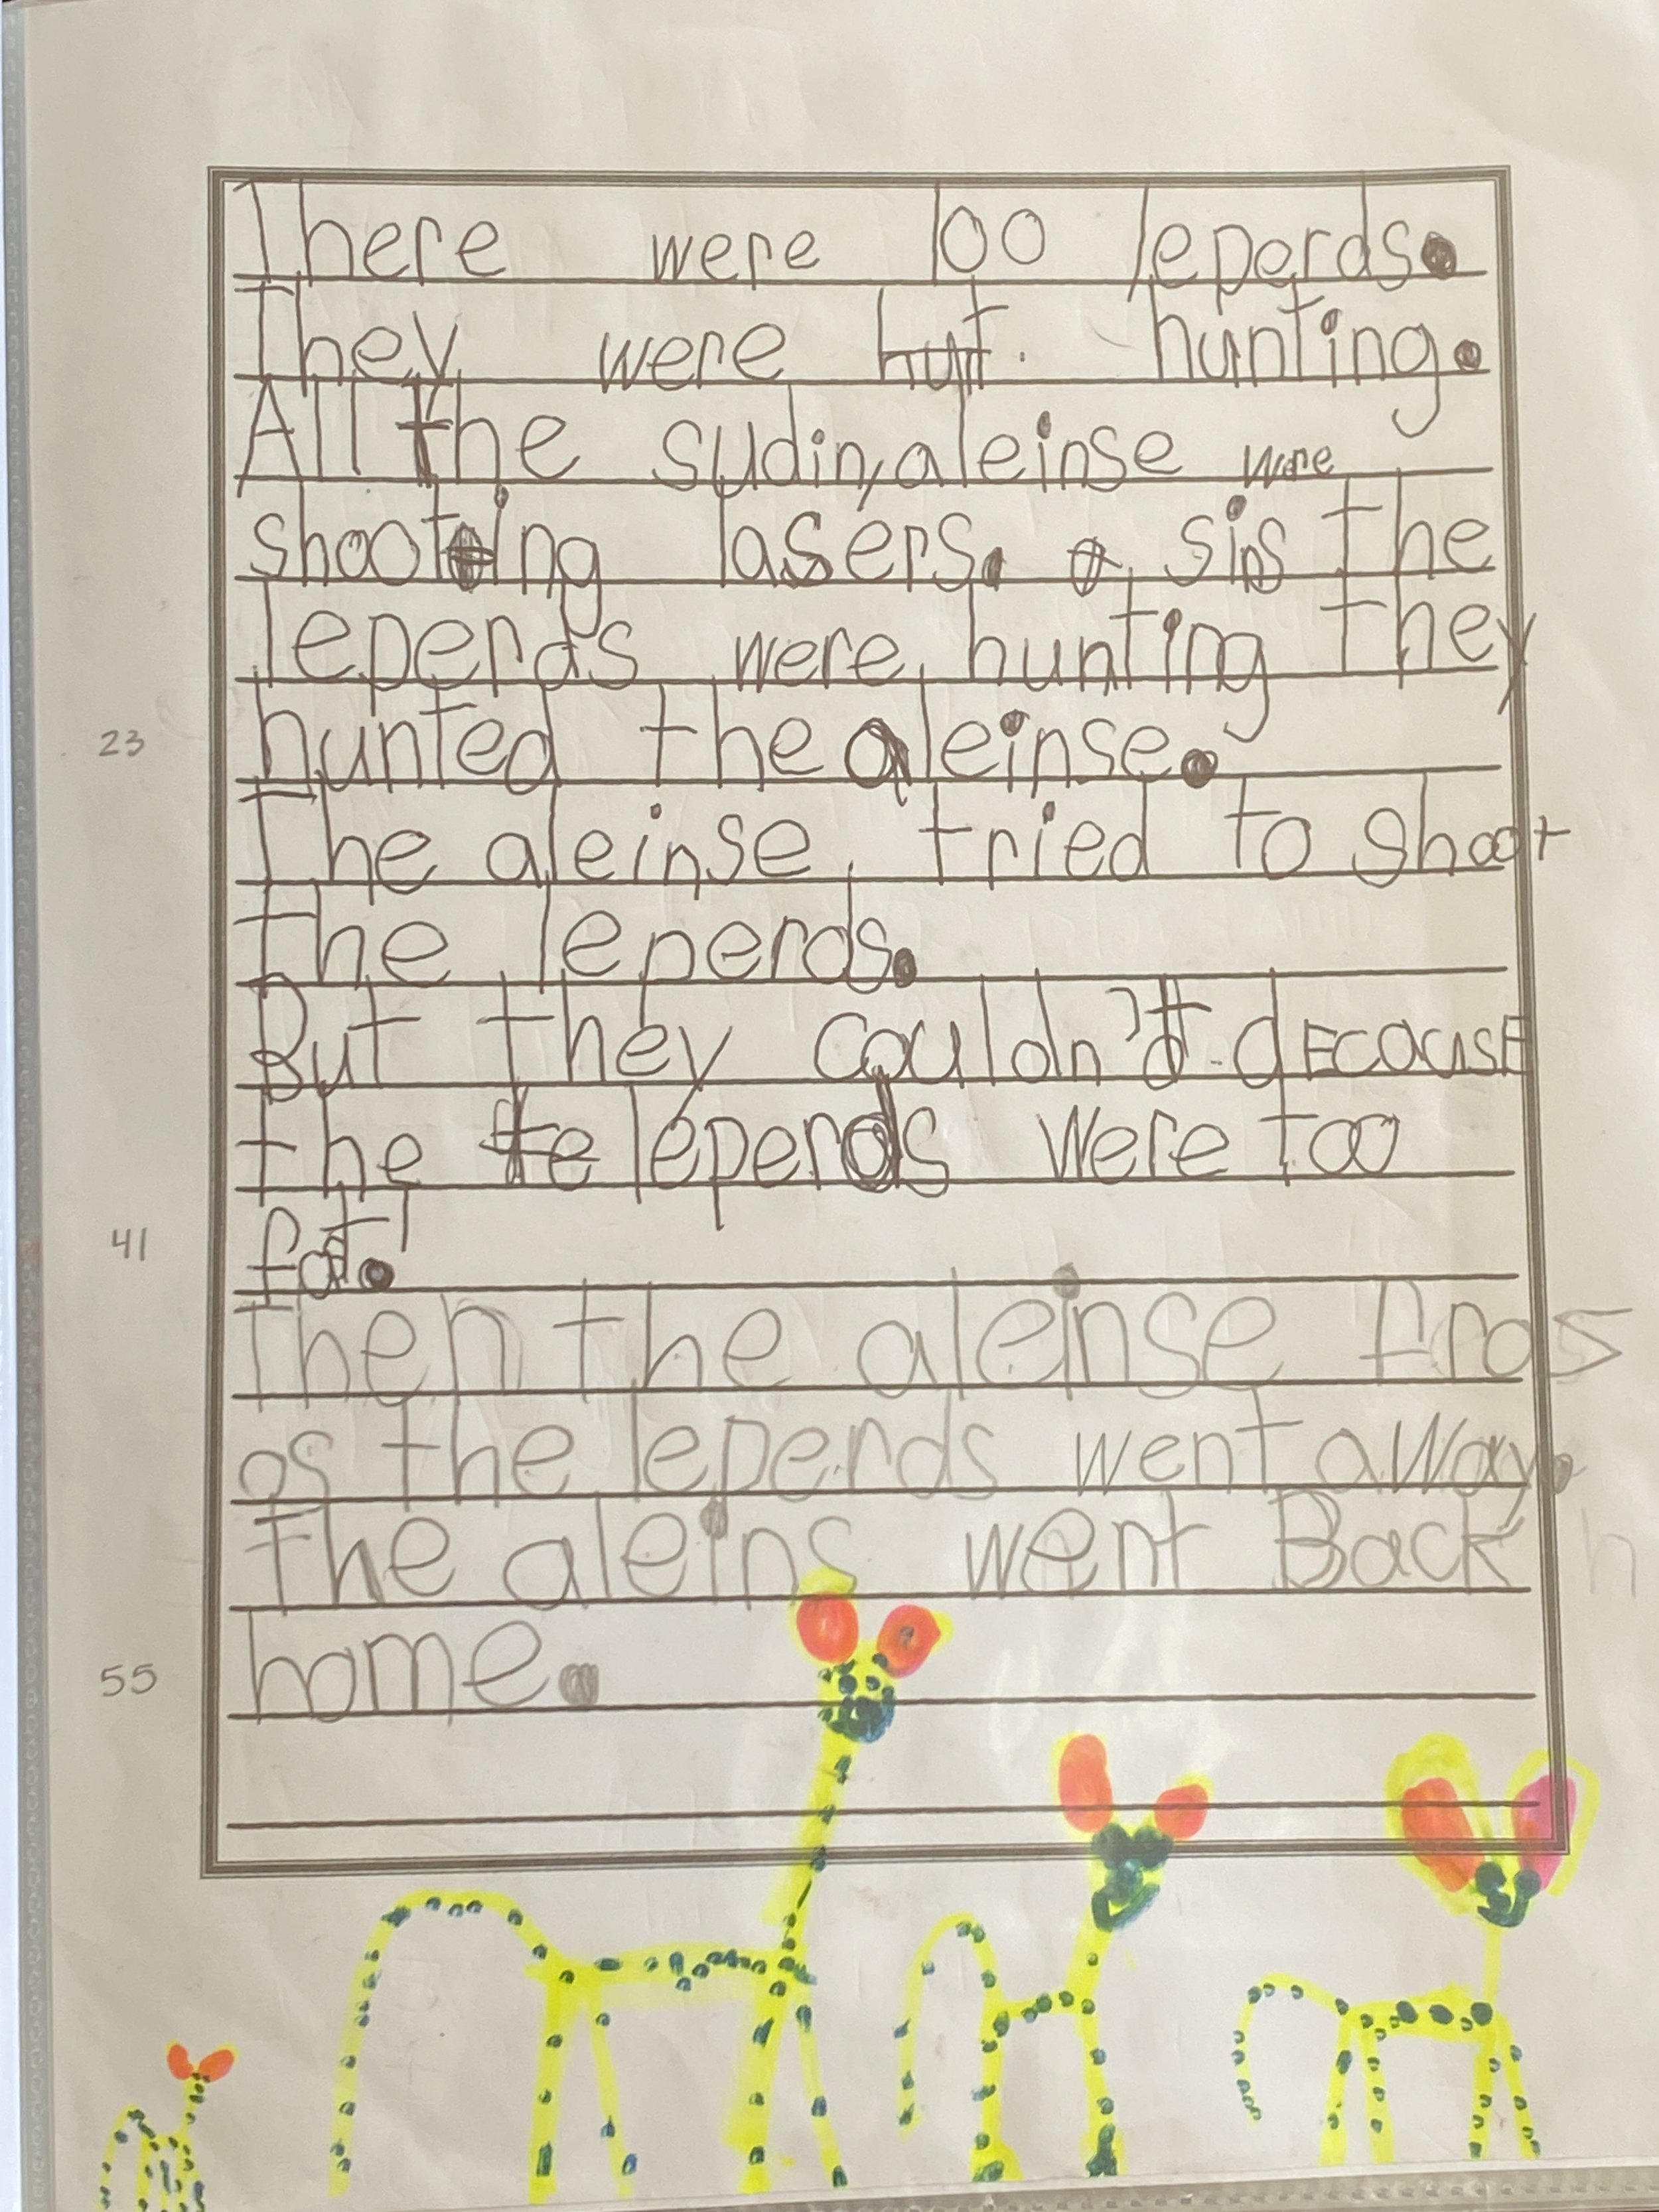 There were 100 leperds.
They were hut. hunting.
All the sudin, aleinse were
shooting lasers. sins the
leperds were hunting they
23 hunted the aleinse.
The aleinse tried to shoot
the leperds.
But they couldn't decause
the te leperds were too
41 fat.
Then the aleinse fros
as the leperds went away.
The aleins went Back h
55 home.